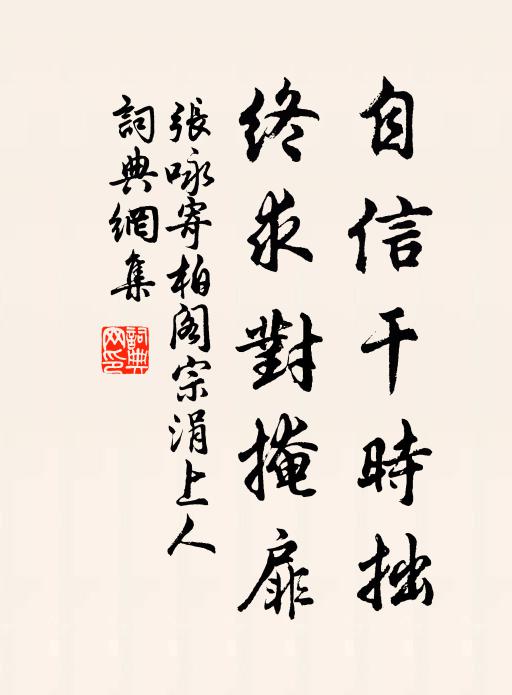 自信干時拙
終求對掩扉
張咏寄柏閣宗涓上人
詞典網集
詞典網印